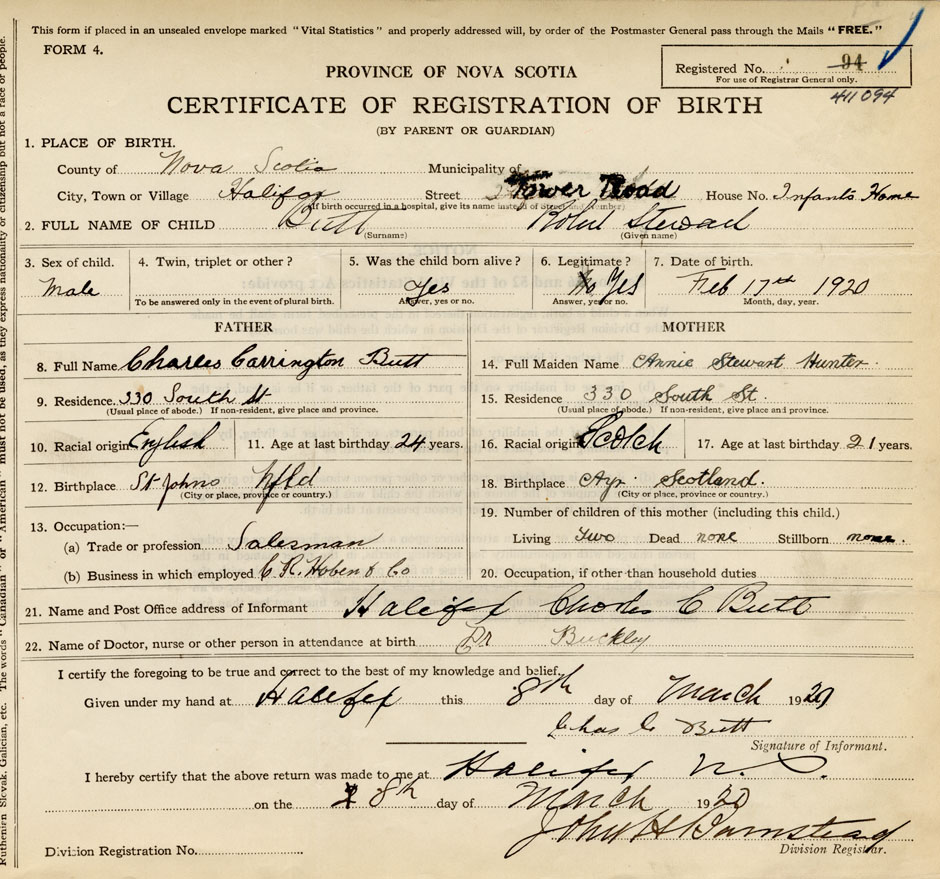 This form if placed in an unsealed envelope marked "Vital Statistics" and properly addressed will, by order of the Postmaster General pass through the Mails "FREE."
FORM 4.
Registered No. 94
For use of Registrar General only.
411094
PROVINCE OF NOVA SCOTIA
CERTIFICATE OF REGISTRATION OF BIRTH
(BY PARENT OR GUARDIAN)
1. PLACE OF BIRTH.
County of Nova Scotia Municipality of
City, Town or Village Halifax Street Tower Road House No. Infants Home
(If birth occurred in a hospital, give its name instead of Street and Number)
2. FULL NAME OF CHILD Butt Robert Stewart
(Surname) (Given name)
3. Sex of child. 4. Twin, triplet or other? 5. Was the child born alive? 6. Legitimate? 7. Date of birth.
Male Yes No Yes Feb 17th 1920
To be answered only in the event of plural birth. Answer, yes or no. Answer, yes or no. Month, day, year.
FATHER MOTHER
8. Full Name Charles Carrington Butt 14. Full Maiden Name Annie Stewart Hunter
9. Residence 330 South St 15. Residence 330 South St.
(Usual place of abode.) If non-resident, give place and province. (Usual place of abode.) If non-resident, give place and province.
10. Racial origin English 11. Age at last birthday 24 years. 16. Racial origin Scotch 17. Age at last birthday 21 years.
12. Birthplace St Johns Nfld 18. Birthplace Ayr Scotland.
(City or place, province or country.) (City or place, province or country.)
13. Occupation:— 19. Number of children of this mother (including this child.)
(a) Trade or profession Salesman Living Two Dead none Stillborn none.
(b) Business in which employed C R. Hoben & Co 20. Occupation, if other than household duties
21. Name and Post Office address of Informant Halifax Charles C Butt
22. Name of Doctor, nurse or other person in attendance at birth Dr Buckley
I certify the foregoing to be true and correct to the best of my knowledge and belief,
Given under my hand at Halifax this 8th day of March 1920
Chas C Butt
Signature of Informant.
I hereby certify that the above return was made to me at Halifax N. S.
on the 8th day of March 1920
John H Barnstead
Division Registrar.
Division Registration No.
Ruthenien Slovak, Galician, etc. The words "Canadian" or "American" must not be used, as they express nationality or citizenship but not a race or people.